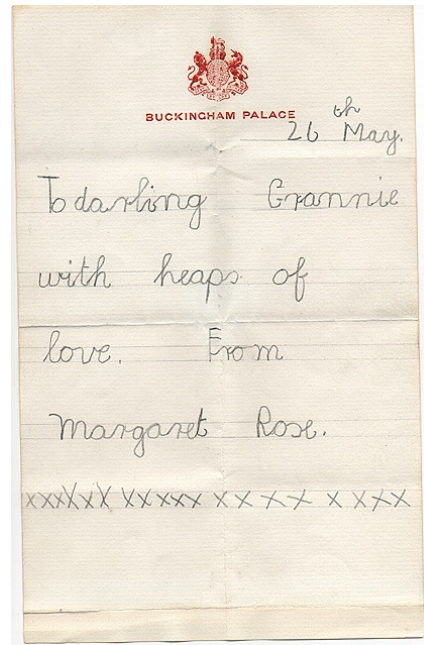 BUCKINGHAM PALACE
26th May.
To darling Grannie
with heaps of
love. From
Margaret Rose.
xxxXxxX XXxxx X X X X X XXX